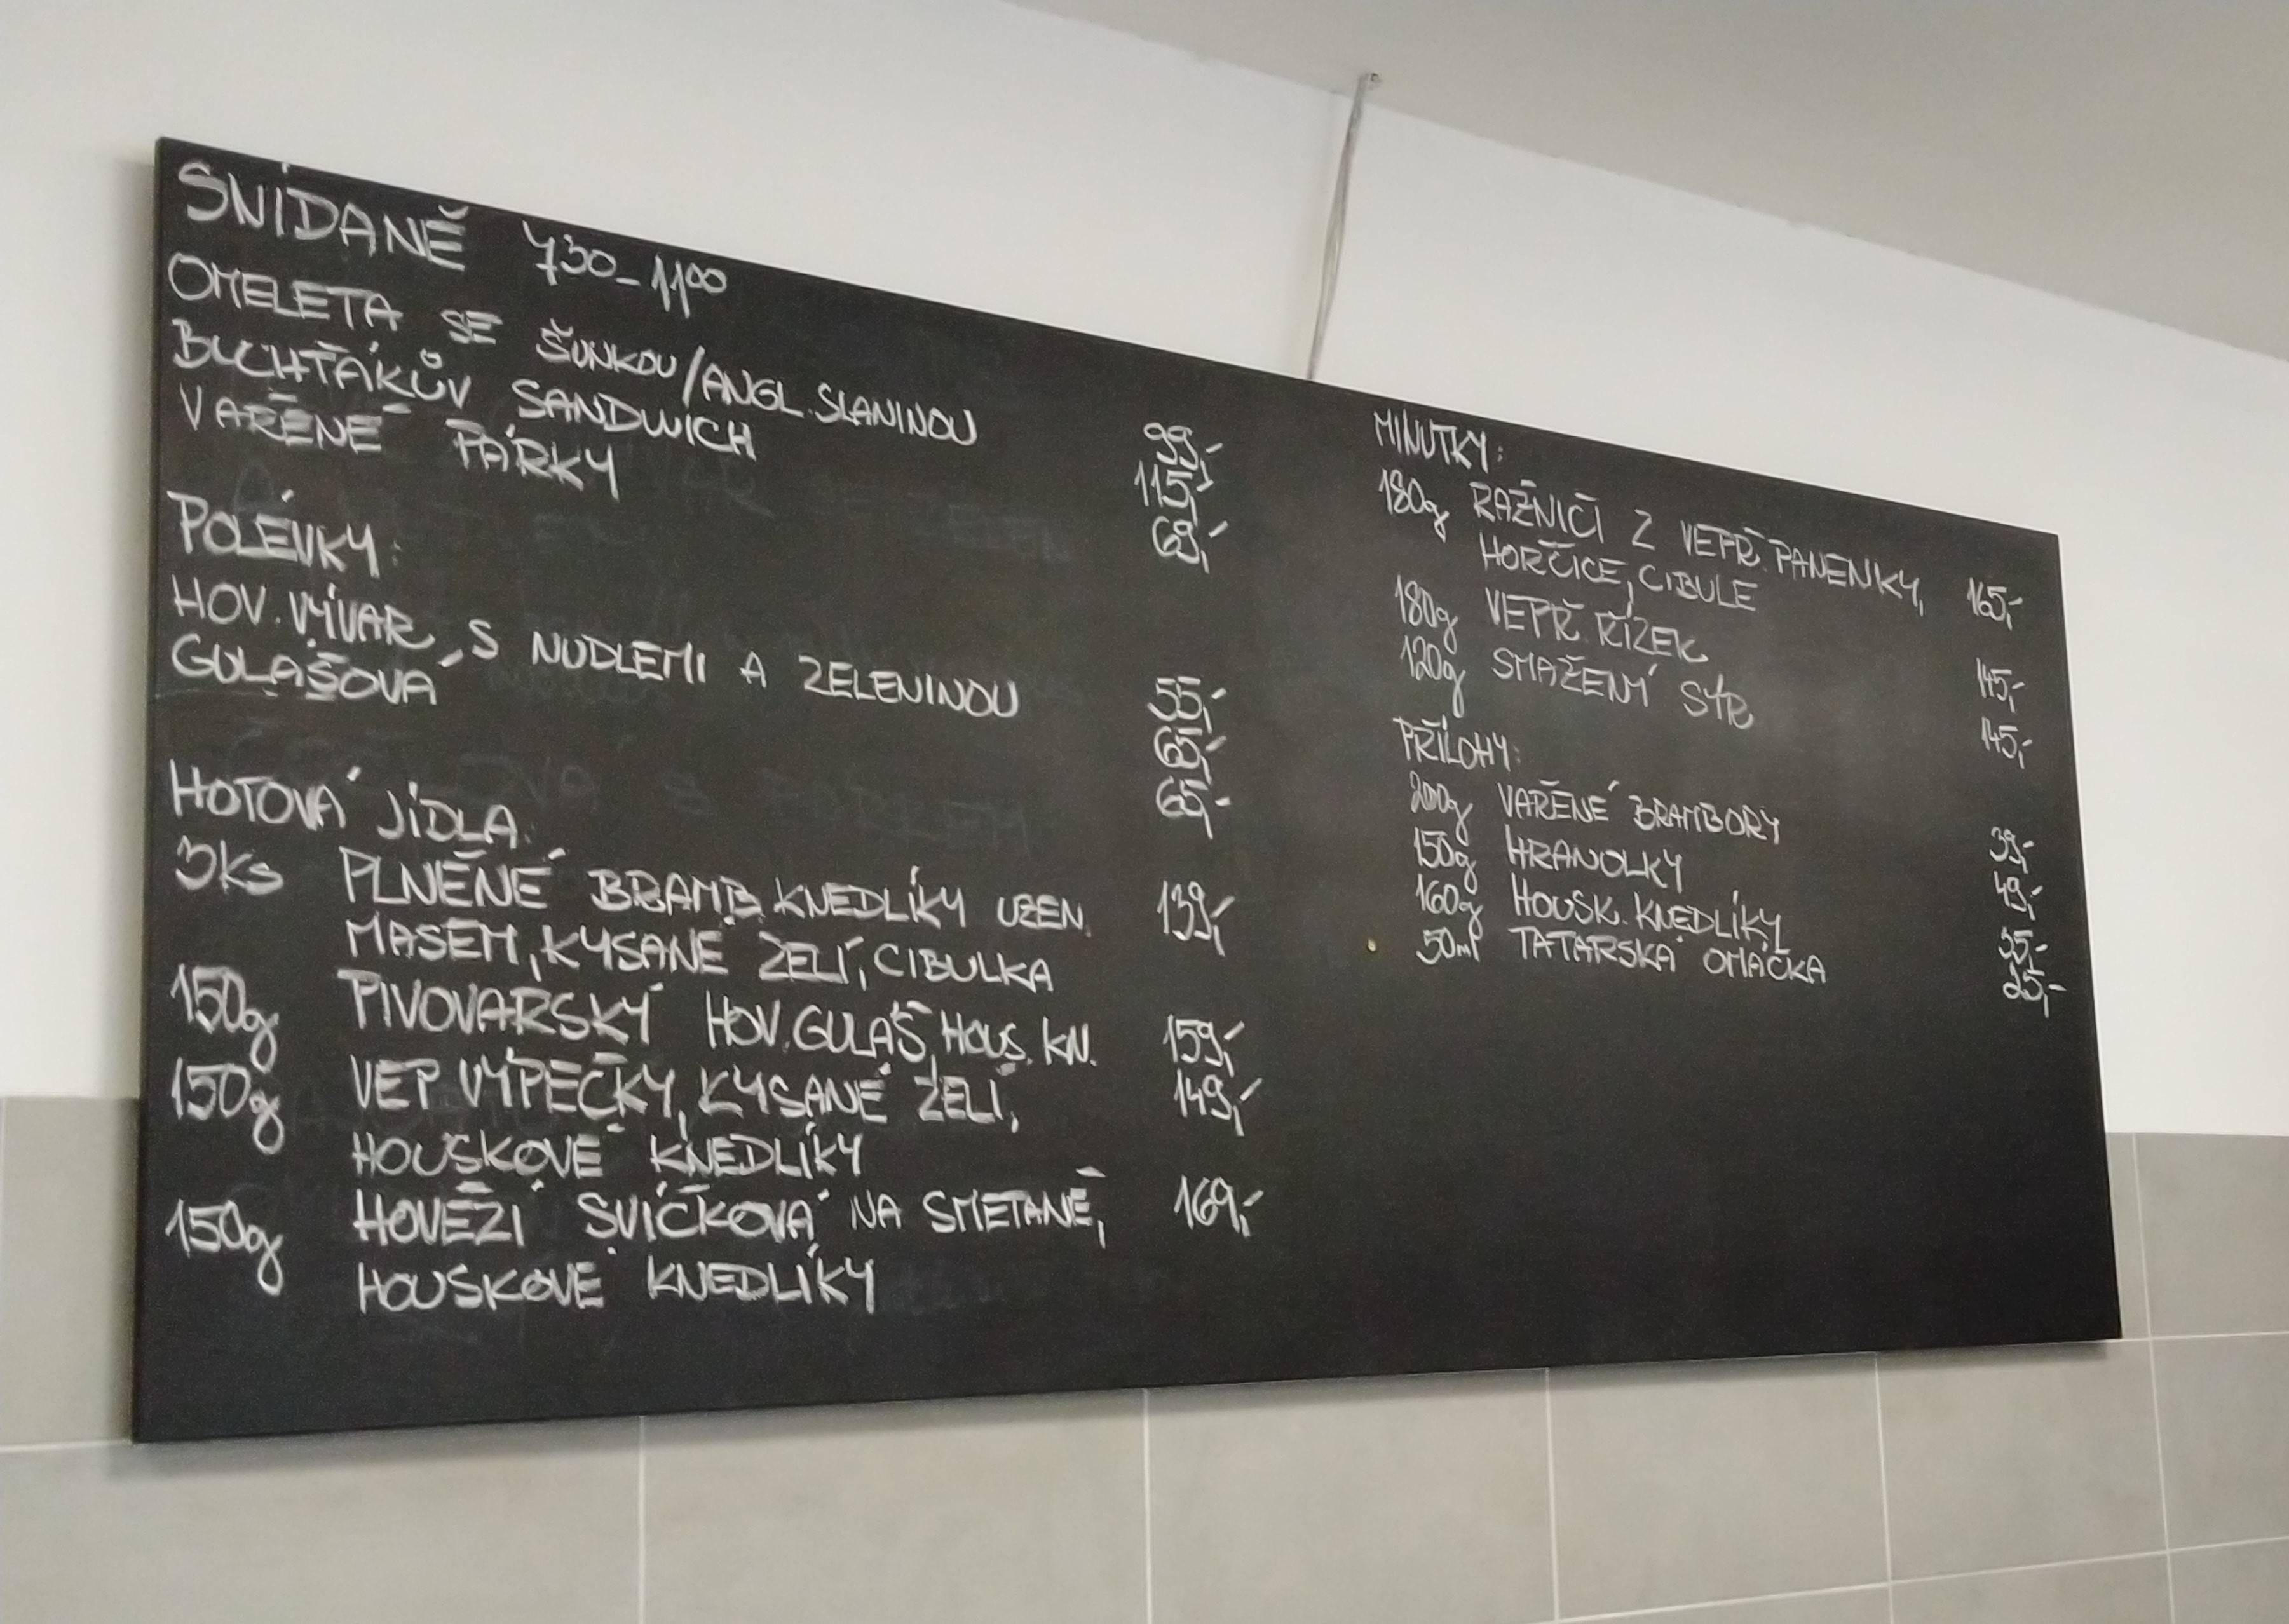 SNÍDANĚ 7³⁰-11⁰⁰
OMELETA SE ŠUNKOU/ANGL.SLANINOU 99,-
BUCHŤÁKŮV SANDWICH 115,-
VAŘENÉ PÁRKY 69,-
POLÉVKY:
HOV. VÝVAR S NUDLEMI A ZELENINOU 55,-
GULÁŠOVÁ 65,-
65,-
HOTOVÁ JÍDLA:
3Ks PLNĚNÉ BRAMB. KNEDLÍKY UZEN. 139,-
MASEM, KYSANÉ ZELÍ, CIBULKA
150g PIVOVARSKÝ HOV.GULÁŠ, HOUS. KN. 159,-
150g VEP. VÝPEČKY, KYSANÉ ZELÍ, 149,-
HOUSKOVÉ KNEDLÍKY
150g HOVĚZÍ SVÍČKOVÁ NA SMETANĚ, 169,-
HOUSKOVÉ KNEDLÍKY
MINUTKY:
180g RAŽNIČI Z VEPŘ. PANENKY, 165,-
HOŘČICE, CIBULE
180g VEPŘ. ŘÍZEK 145,-
120g SMAŽENÝ SÝR 145,-
PŘÍLOHY:
200g VAŘENÉ BRAMBORY 39,-
150g HRANOLKY 49,-
160g HOUSK. KNEDLÍKY 35,-
50ml TATARSKÁ OMÁČKA 25,-